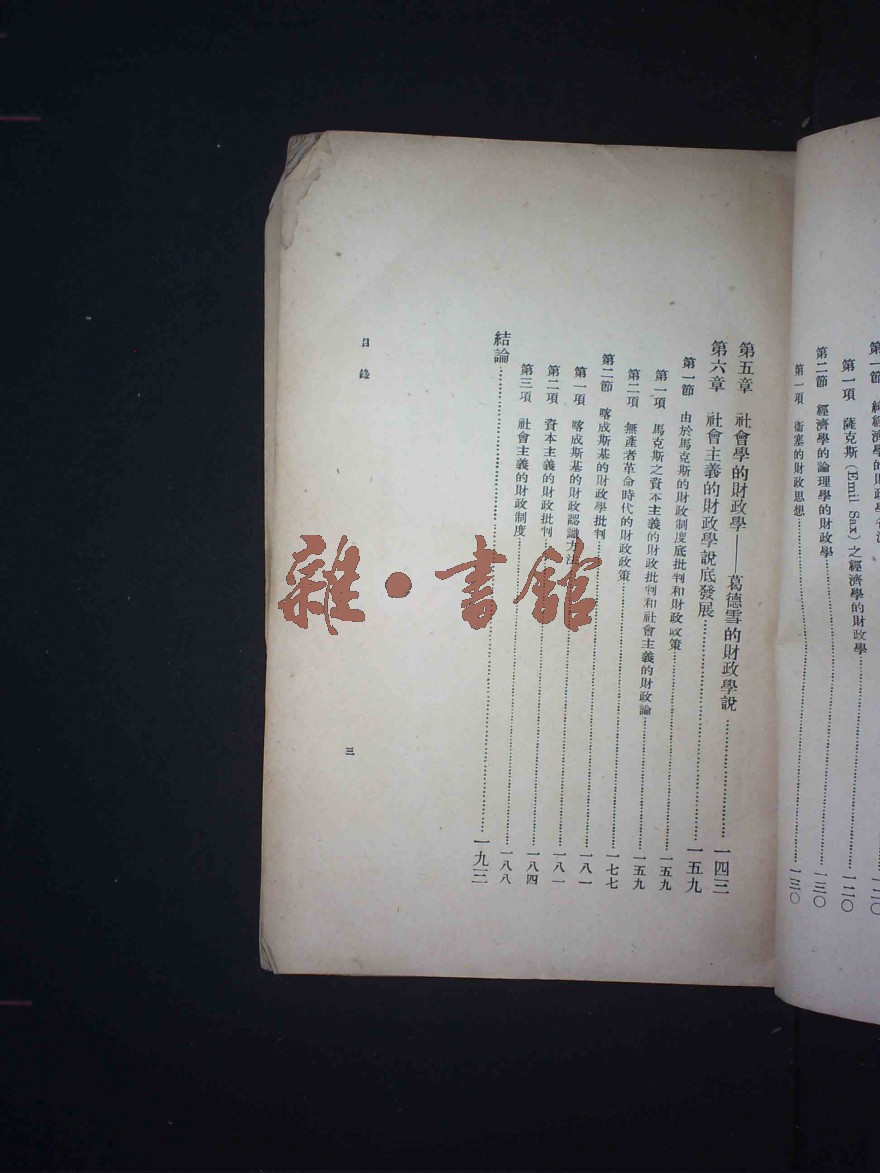 第一項 薩克斯(Emil Sax)之經濟學的財政學……一二〇
第二節 經濟學的論理學的財政學……一三〇
第一項 衞塞的財政思想……一三〇
第五章 社會學的財政學——葛德雪的財政學說……一四三
第六章 社會主義的財政學說底發展……一五九
第一節 由於馬克斯的財政制度底批判和財政政策……一五九
第一項 馬克斯之資本主義的財政批判和社會主義的財政論……一五九
第二項 無產者革命時代的財政政策……一七七
第二節 喀成斯基的財政學批判……一八一
第一項 喀成斯基的財政認識方法……一八一
第二項 資本主義的財政批判……一八四
第三項 社會主義的財政制度……一八八
結論……一九三
目錄
三
雜·書館